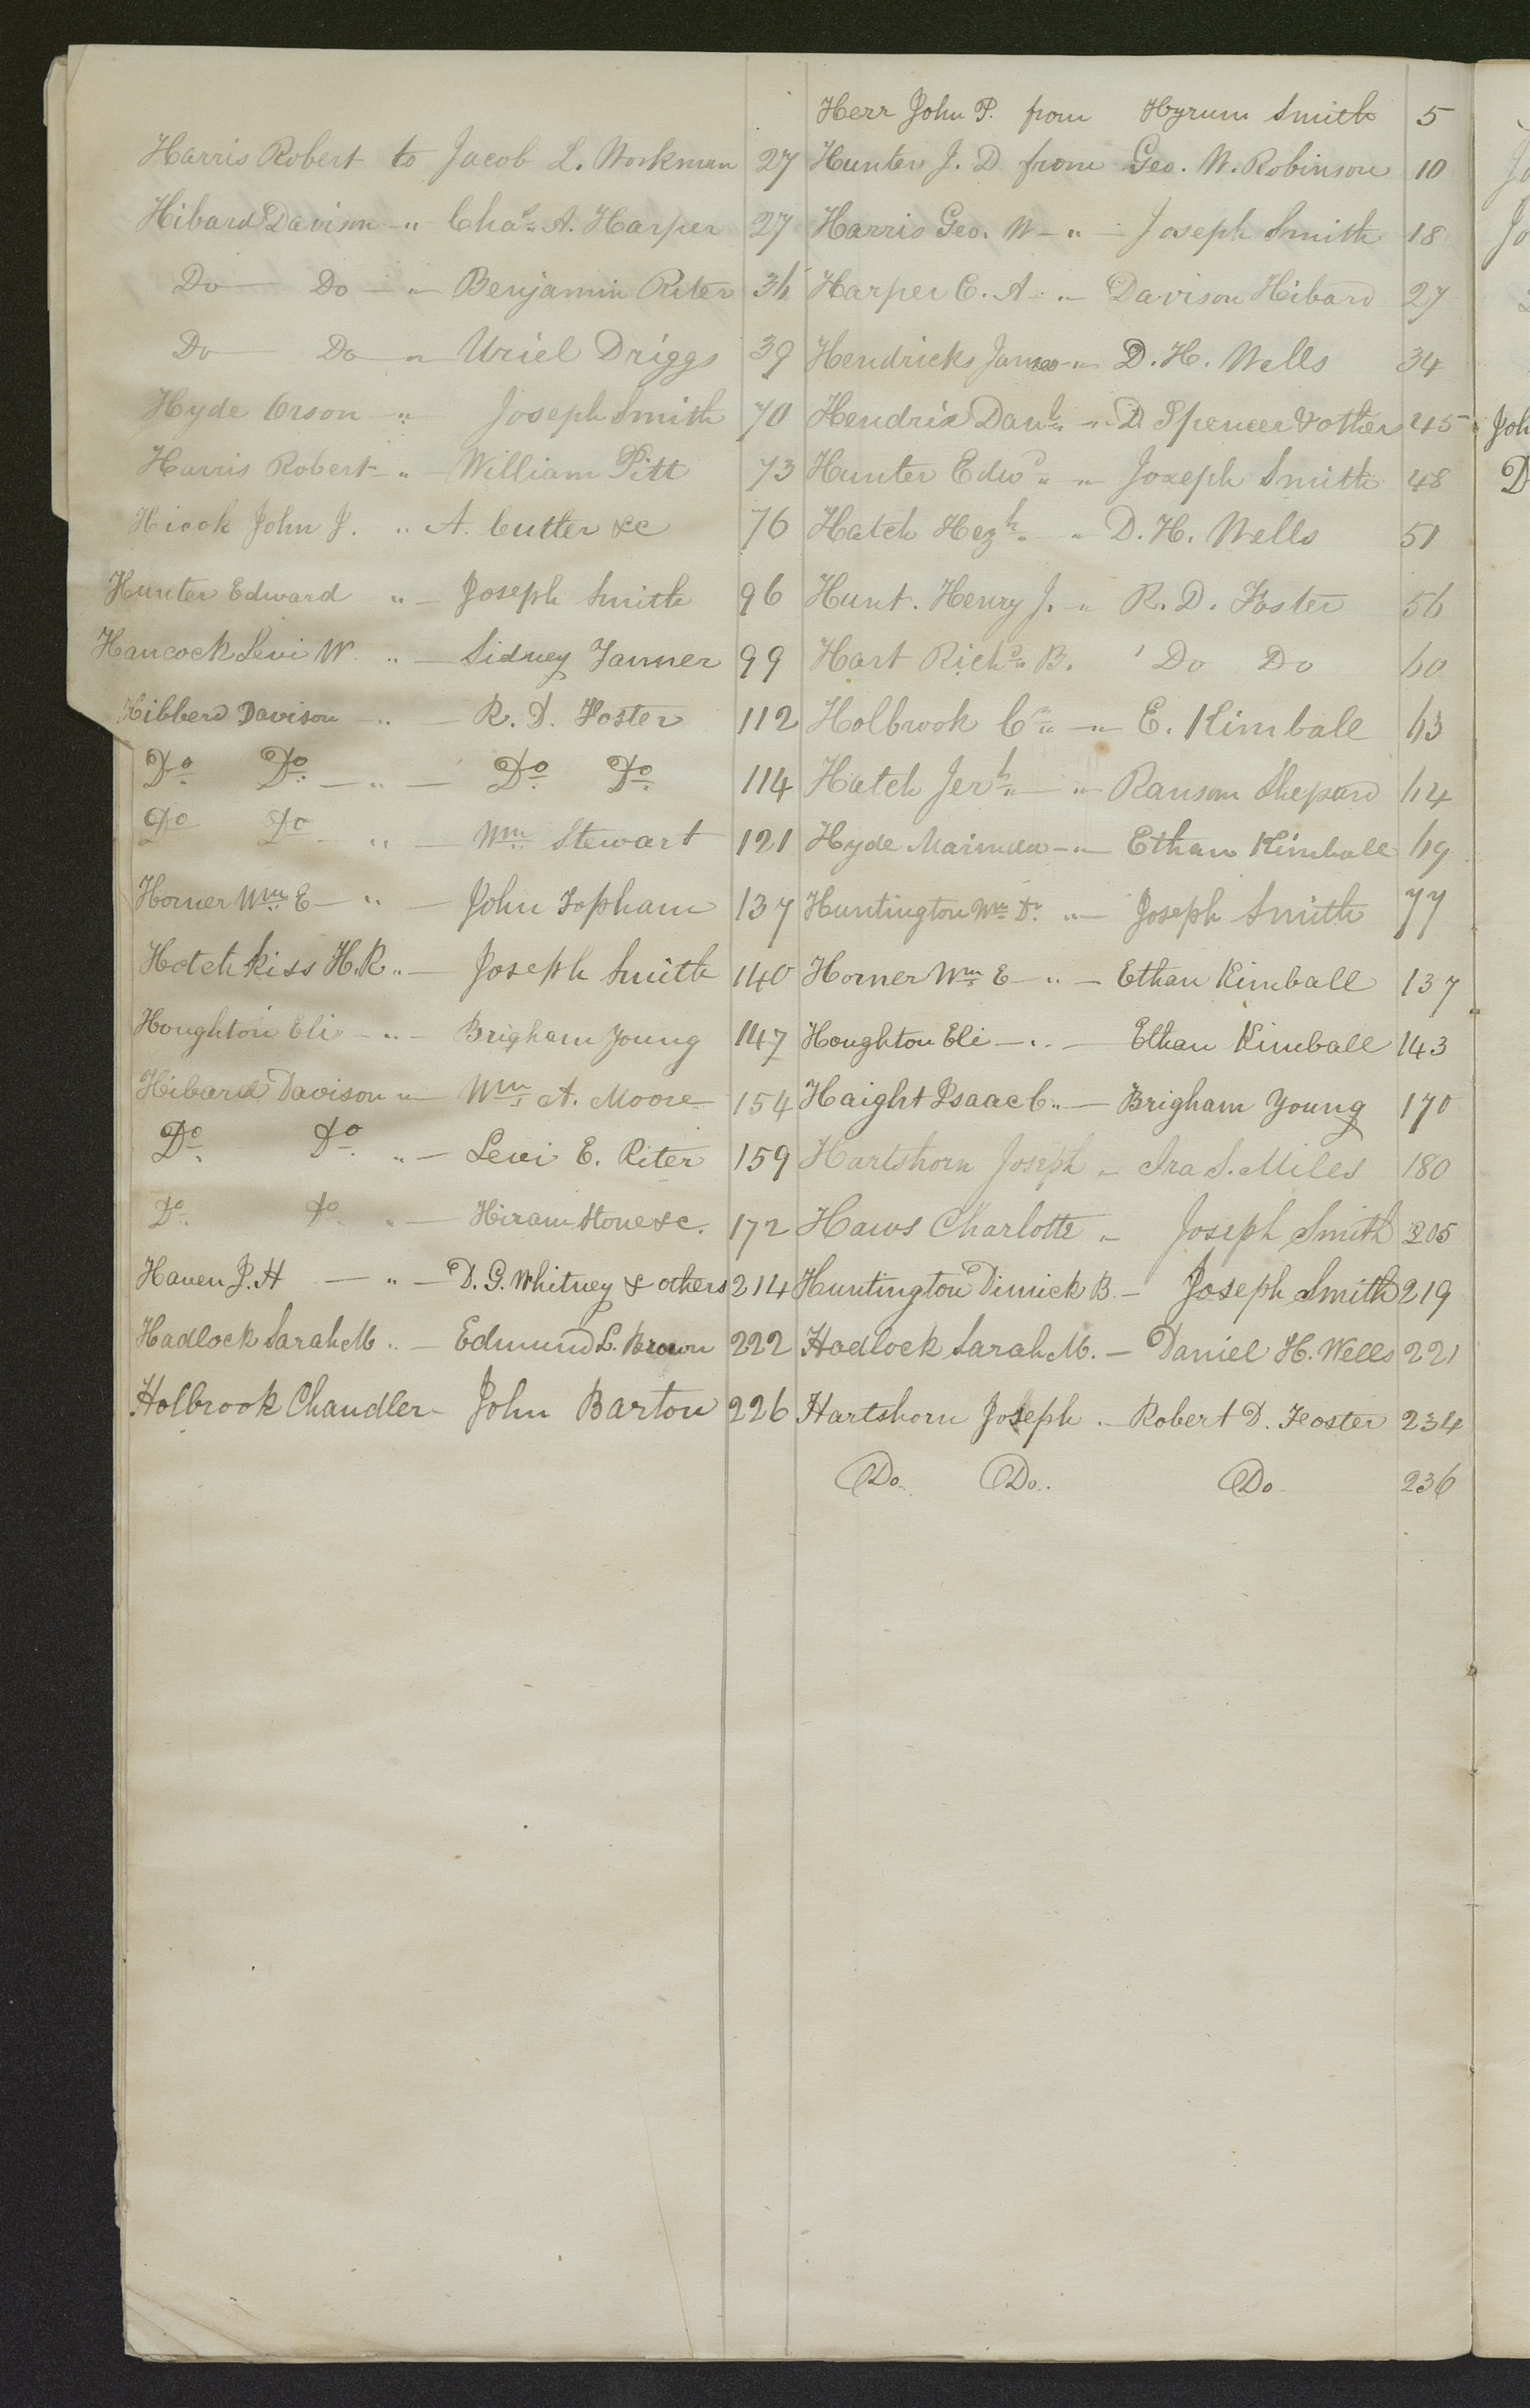 Herr John P. from Hyrum Smith 5
Harris Robert to Jacob L. Workman 27
Hunter J. D from Geo. W. Robinson 10
Hibard Davison — " — Chas. A. Harper 27
Harris Geo. W — " — Joseph Smith 18
Do — Do — " — Benjamin Riter 36
Harper C. A — " — Davison Hibard 27
Do — Do — " — Uriel Driggs 39
Hendricks James — " — D. H. Wells 34
Hyde Orson — " Joseph Smith 70
Hendrix Danl. — " — D. Spencer & other 45
Harris Robert — " — William Pitt 73
Hunter Edwd. " — Joseph Smith 48
Hicok John J. " A. Cutler &c 76
Hatch Hezh. " — D. H. Wells 51
Hunter Edward " — Joseph Smith 96
Hunt. Henry J. — " R. D. Foster 56
Hancock Levi W. " — Sidney Tanner 99
Hart Richd. B. " Do Do 60
Hibberd Davison — " — R. D. Foster 112
Holbrook Cr. " — " — E. Kimball 63
Do. Do. — " — Do. Do. 114
Hatch Jerh. " — " — Ransom Shepard 64
Do Do — " — Wm. Stewart 121
Hyde Marinda — " — Ethan Kimball 69
Horner Wm. E — " — John Topham 137
Huntington Wm. Dr. " — Joseph Smith 77
Hotchkiss H. R. " — Joseph Smith 140
Horner Wm. E — " — Ethan Kimball 137
Houghton Eli — " — Brigham Young 147
Houghton Eli — " — Ethan Kimball 143
Hibard Davison " — Wm. A. Moore 154
Haight Isaac C. " — Brigham Young 170
Do. Do. " — Levi E. Riter 159
Hartshorn Joseph " — Ira S. Miles 180
Do. Do. " — Hiram Stone &c. 172
Haws Charlotte " — Joseph Smith 205
Haven J. H — " — D. G. Whitney & others 214
Huntington Dimick B. — Joseph Smith 219
Hadlock Sarah M. " — Edmund L. Brown 222
Hadlock Sarah M. — Daniel H. Wells 221
Holbrook Chandler — John Barton 226
Hartshorn Joseph. — Robert D. Foster 234
Do. Do. Do 236